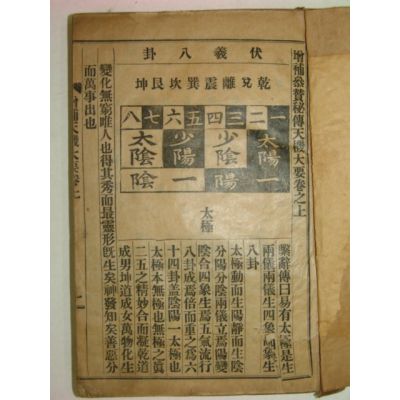 增補參贊秘傳天機大要卷之上
伏羲八卦
乾兌離震巽坎艮坤
一二三四五六七八
太陽 少陰 少陽 太陰
陽 陰
太極
繫辭傳曰易有太極是生
兩儀兩儀生四象四象生
八卦
太極動而生陽靜而生陰
分陽分陰兩儀立焉陽變
陰合四象生焉五氣流行
八卦成焉倍而重之爲六
十四卦盖陰陽一太極也
太極本無極也無極之眞
二五之精妙合而凝乾道
成男坤道成女萬物化生
變化無窮唯人也得其秀而最靈形旣生矣神發知矣善惡分
而萬事出也
增補天機大要卷上 一